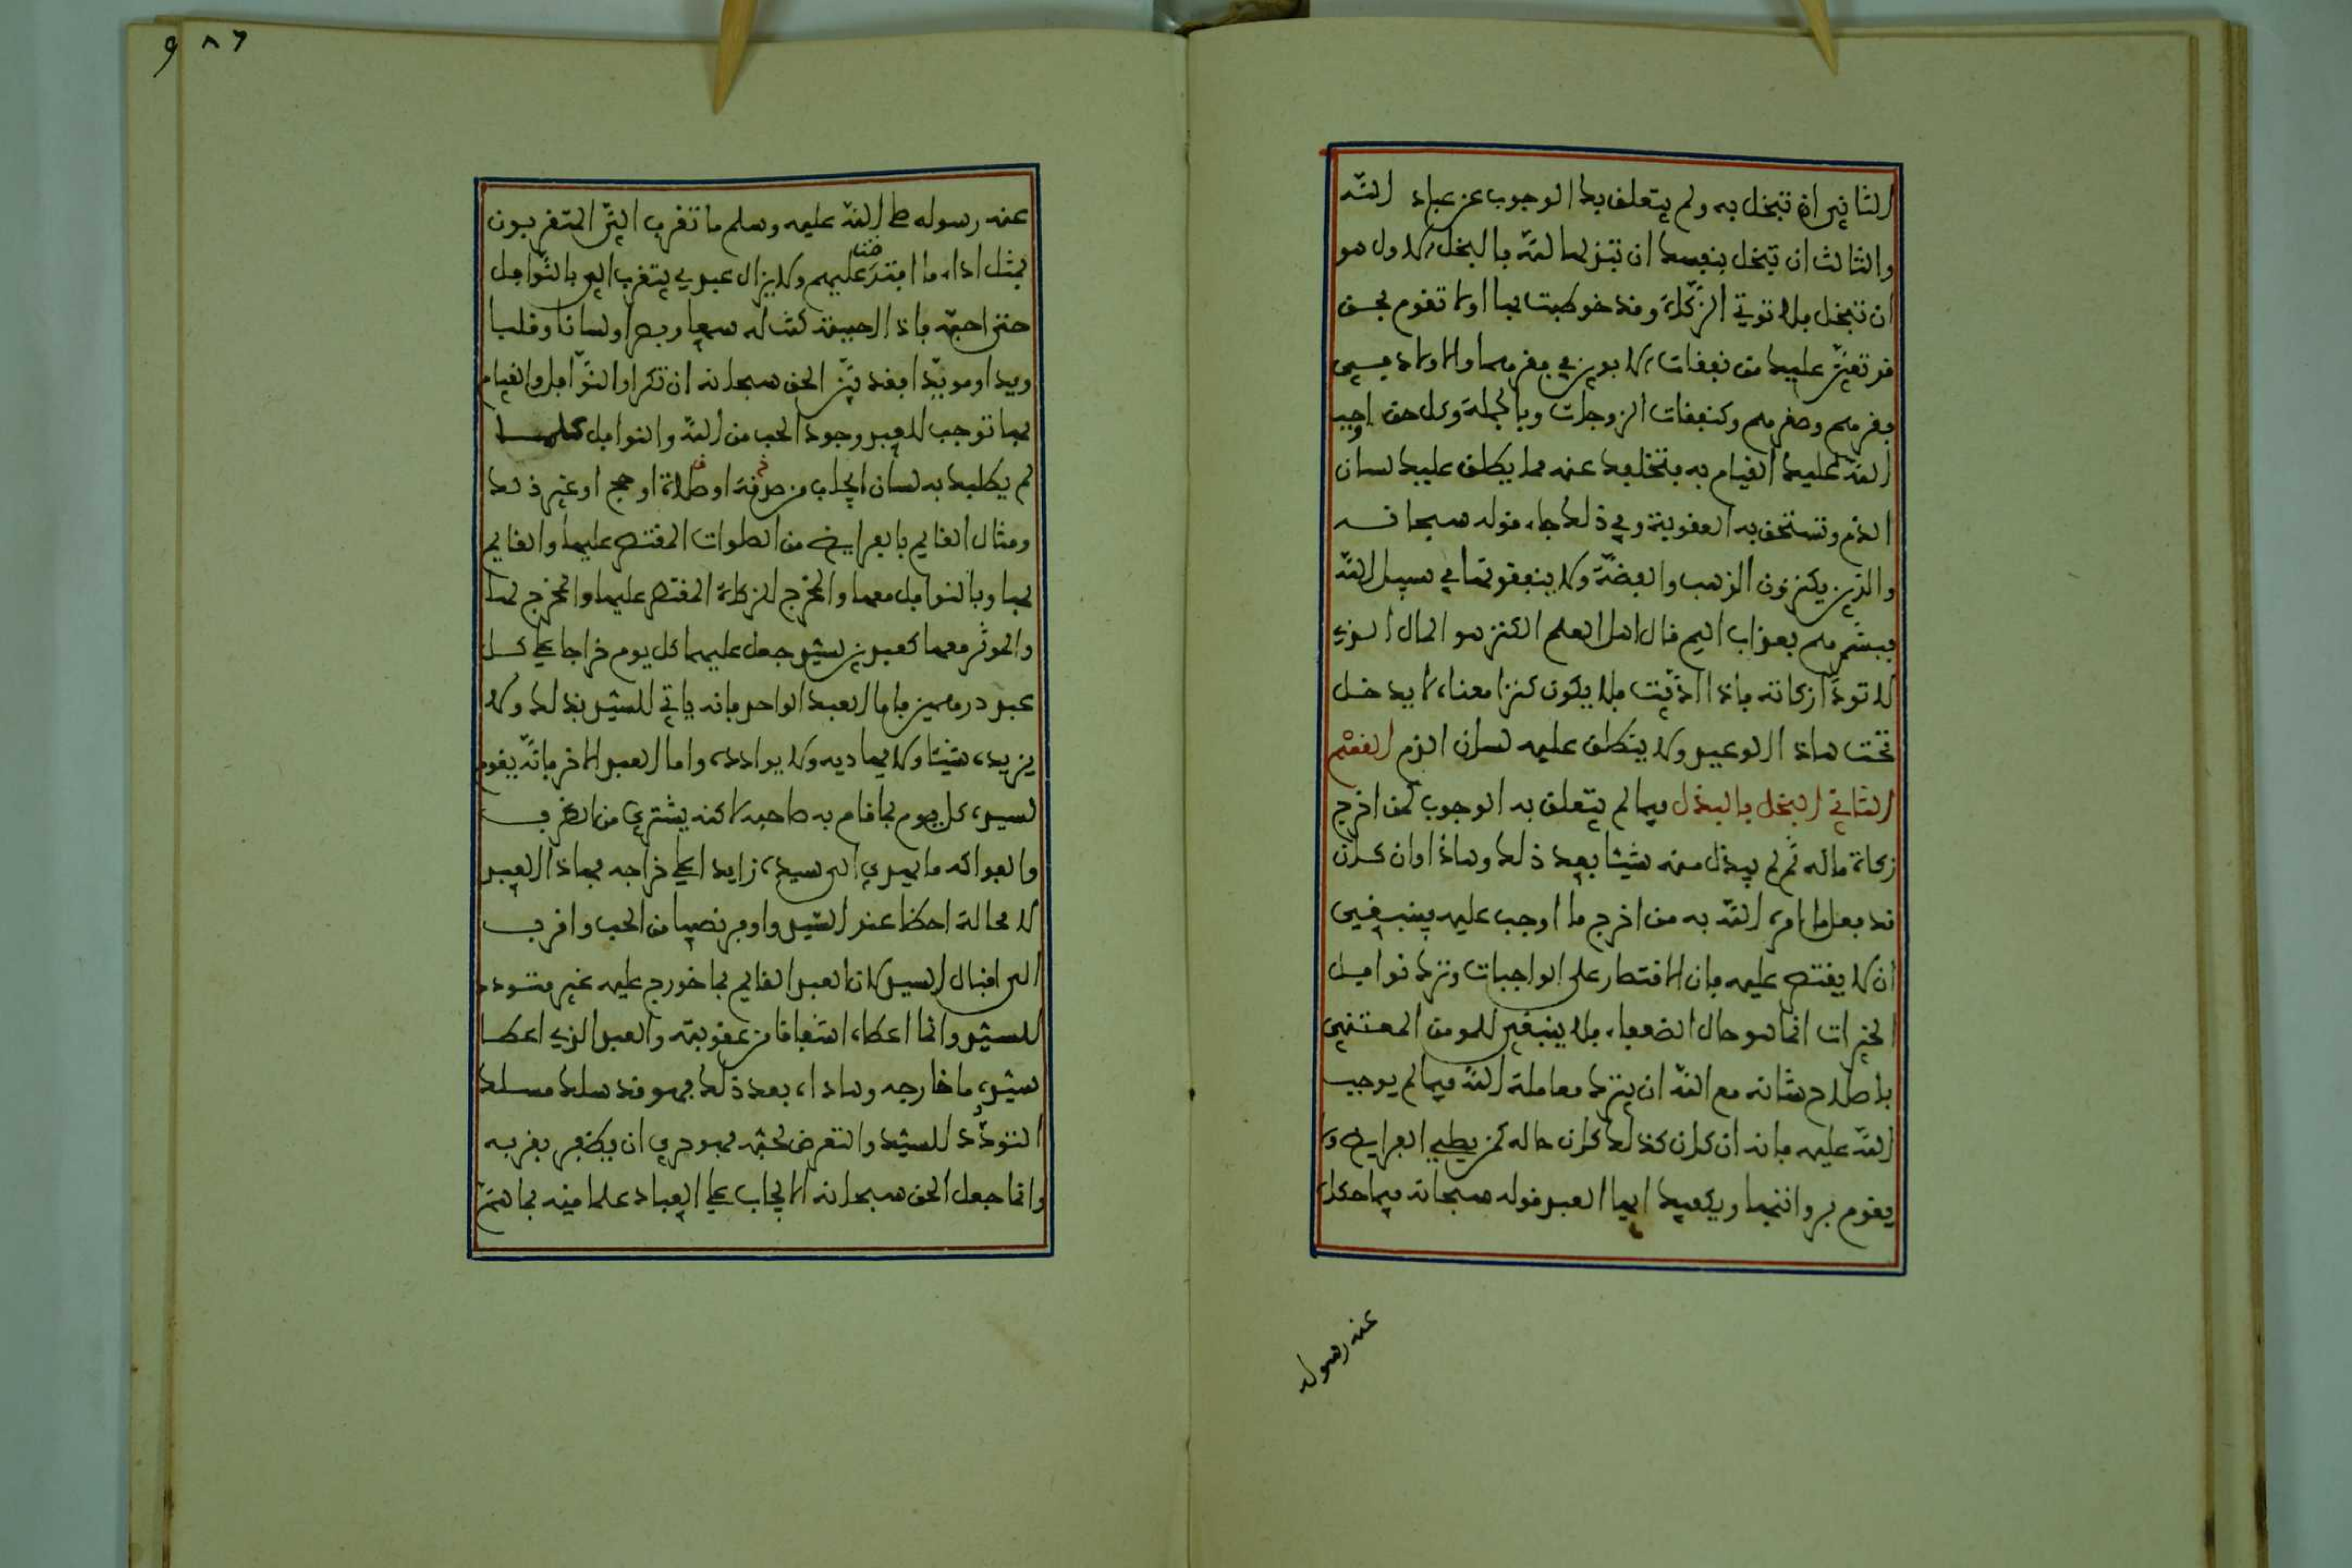 الثاني ان تبخل به ولم يتعلق بك الوجوب عن عباد الله
والثالث ان تبخل بنفسك ان تبذلها لله فالبخل الاول هو
ان تبخل فلا توتي الزكاة وقد خوطبت بها اولا تقوم بحق
قد تعين عليك من نفقات الابوين في فقرهما والاولاد في
فقرهم وصغرهم وكنفقات الزوجات وبالجملة وكل حق اوجب
الله عليك القيام به فتخلفك عنه مما يطلق عليك لسان
الذم وتستحق به العقوبة وفي ذلك جاء قوله سبحانه
والذين يكنزون الذهب والفضة ولا ينفقونها في سبيل الله
فبشرهم بعذاب اليم قال اهل العلم الكنز هو المال الذي
لا تودا زكاته فاذا اديت فلا يكون كنزا معناه لا يدخل
تحت هاذا الوعيد ولا ينطلق عليه لسان الذم القسم
الثاني البخل بالبذل فيما لم يتعلق به الوجوب كمن اخرج
زكاة ماله ثم لم يبذل منه شيئا بعد ذلك وهاذا وان كان
قد فعل ما امره الله به من اخراج ما اوجب عليه فينبغي
ان لا يقتصر عليه فان الاقتصار على الواجبات وترك نوافل
الخيرات انما هو حال الضعفاء فلا ينبغي للمومن المعتني
باصلاح شانه مع الله ان يترك معاملة الله فيما لم يوجب
الله عليه فانه ان كان كذلك كان حاله كمن يصلي الفرايض ولا
يقوم برواتبها ويكفيك ايها العبد قوله سبحانه فيما حكاه
عنه رسوله
٩٨٦
عنه رسوله صلى الله عليه وسلم ما تقرب الي المتقربون
بمثل اداء ما افترضت عليهم ولا يزال عبدي يتقرب الي بالنوافل
حتى احبه فاذا احببته كنت له سمعا وبصرا ولسانا وقلبا
ويدا ومويدا فقد بين الحق سبحانه ان تكرار النوافل والقيام
بها توجب للعبد وجود الحب من الله والنوافل كلما
لم يطلبك به لسان الايجاب من صدقة او صلاة او حج او غير ذلك
ومثال القايم بالفرايض من الصلوات المقتصر عليها والقايم
بها وبالنوافل معها والمخرج الزكاة المقتصر عليها والمخرج لها
والموثر معها كعبدين لسيد جعل عليهما كل يوم خراجا على كل
عبد درهمين فاما العبد الواحد فانه ياتي للسيد بذلك ولا
يزيده شيئا ولا يهاديه ولا يوادده واما العبد الاخر فانه يقوم
لسيده كل يوم بما قام به صاحبه لاكنه يشتري من الطرف
والفواكه ما يهدي الى سيده زايدا على خراجه فهاذا العبد
لا محالة احظا عند السيد واوفر نصيبا من الحب واقرب
الى اقبال السيد لان العبد القايم بما خورج عليه غير متودد
للسيد وانما اعطاه اشفاقا من عقوبته والعبد الذي اعطا
سيده ما خارجه وهاداه بعد ذلك فهو قد سلك مسلك
التودد للسيد والتعرض لحبه فهو حري ان يظفر بقربه
وانما جعل الحق سبحانه الايجاب على العباد علما منه بما هم